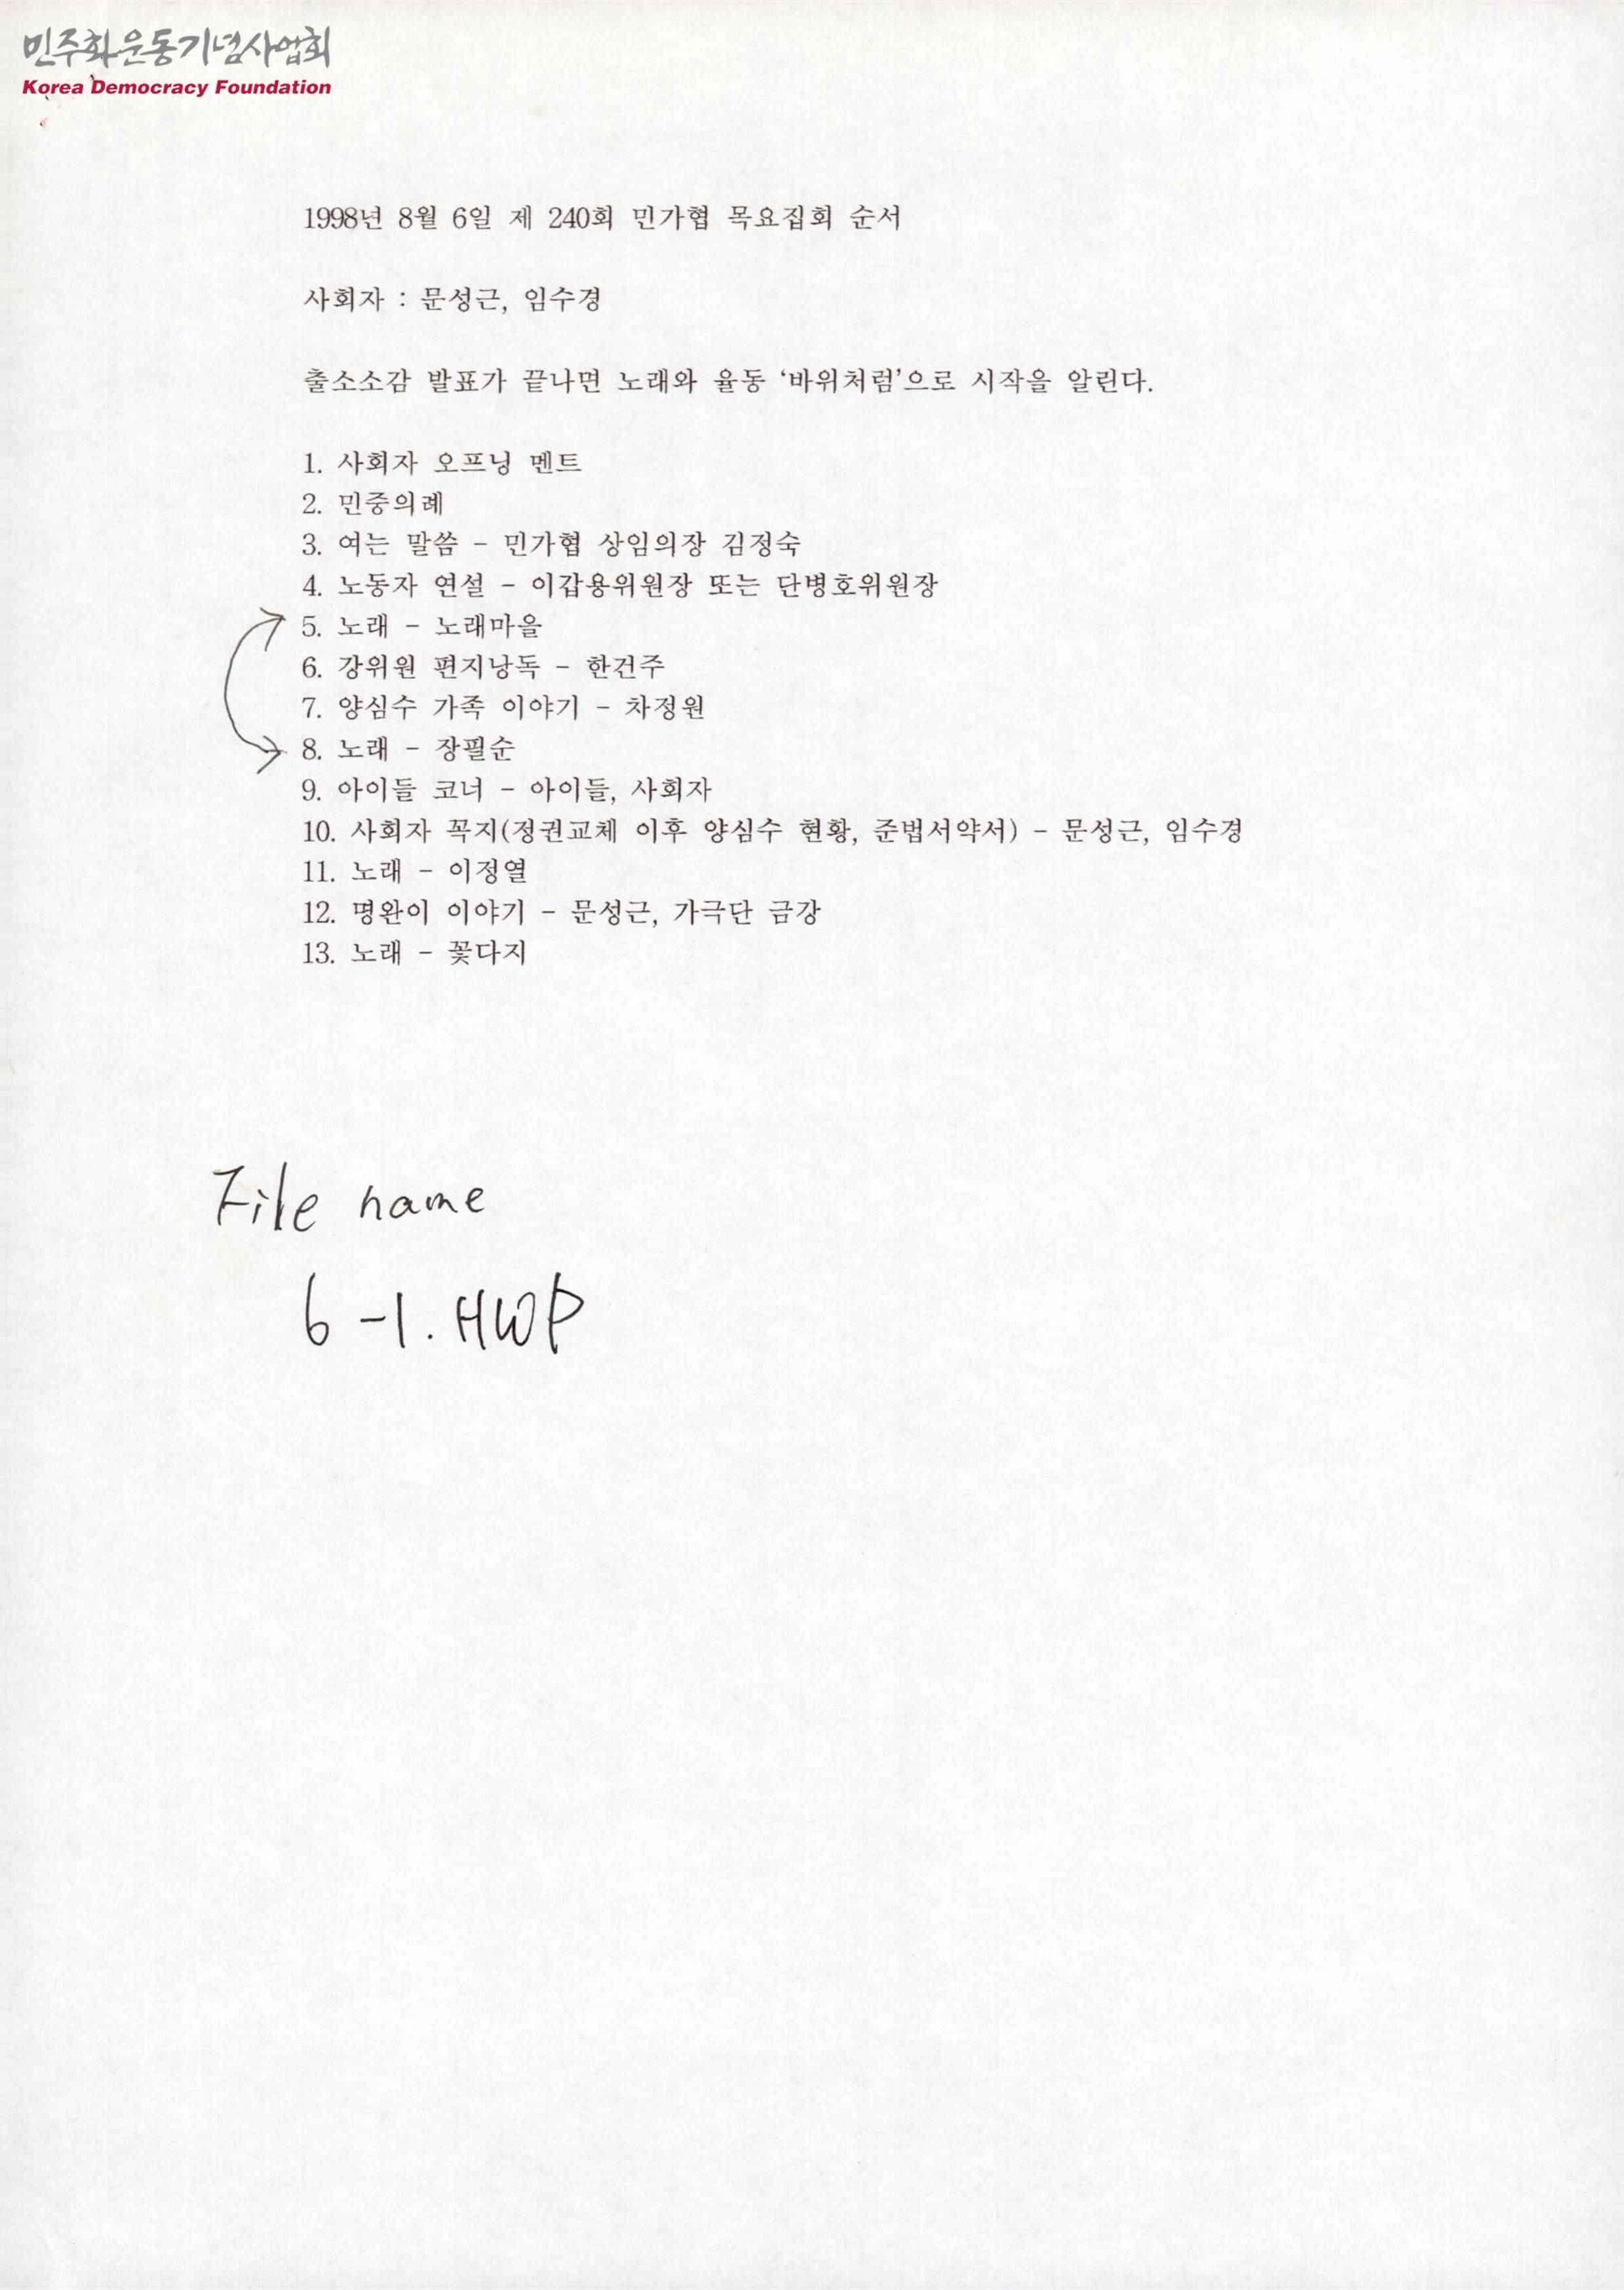 민주화운동기념사업회
Korea Democracy Foundation
1998년 8월 6일 제 240회 민가협 목요집회 순서
사회자 : 문성근, 임수경
출소소감 발표가 끝나면 노래와 율동 ‘바위처럼’으로 시작을 알린다.
1. 사회자 오프닝 멘트
2. 민중의례
3. 여는 말씀 - 민가협 상임의장 김정숙
4. 노동자 연설 - 이갑용위원장 또는 단병호위원장
5. 노래 - 노래마을
6. 강위원 편지낭독 - 한건주
7. 양심수 가족 이야기 - 차정원
8. 노래 - 장필순
9. 아이들 코너 - 아이들, 사회자
10. 사회자 꼭지(정권교체 이후 양심수 현황, 준법서약서) - 문성근, 임수경
11. 노래 - 이정열
12. 명완이 이야기 - 문성근, 가극단 금강
13. 노래 - 꽃다지
File name
6-1. HWP